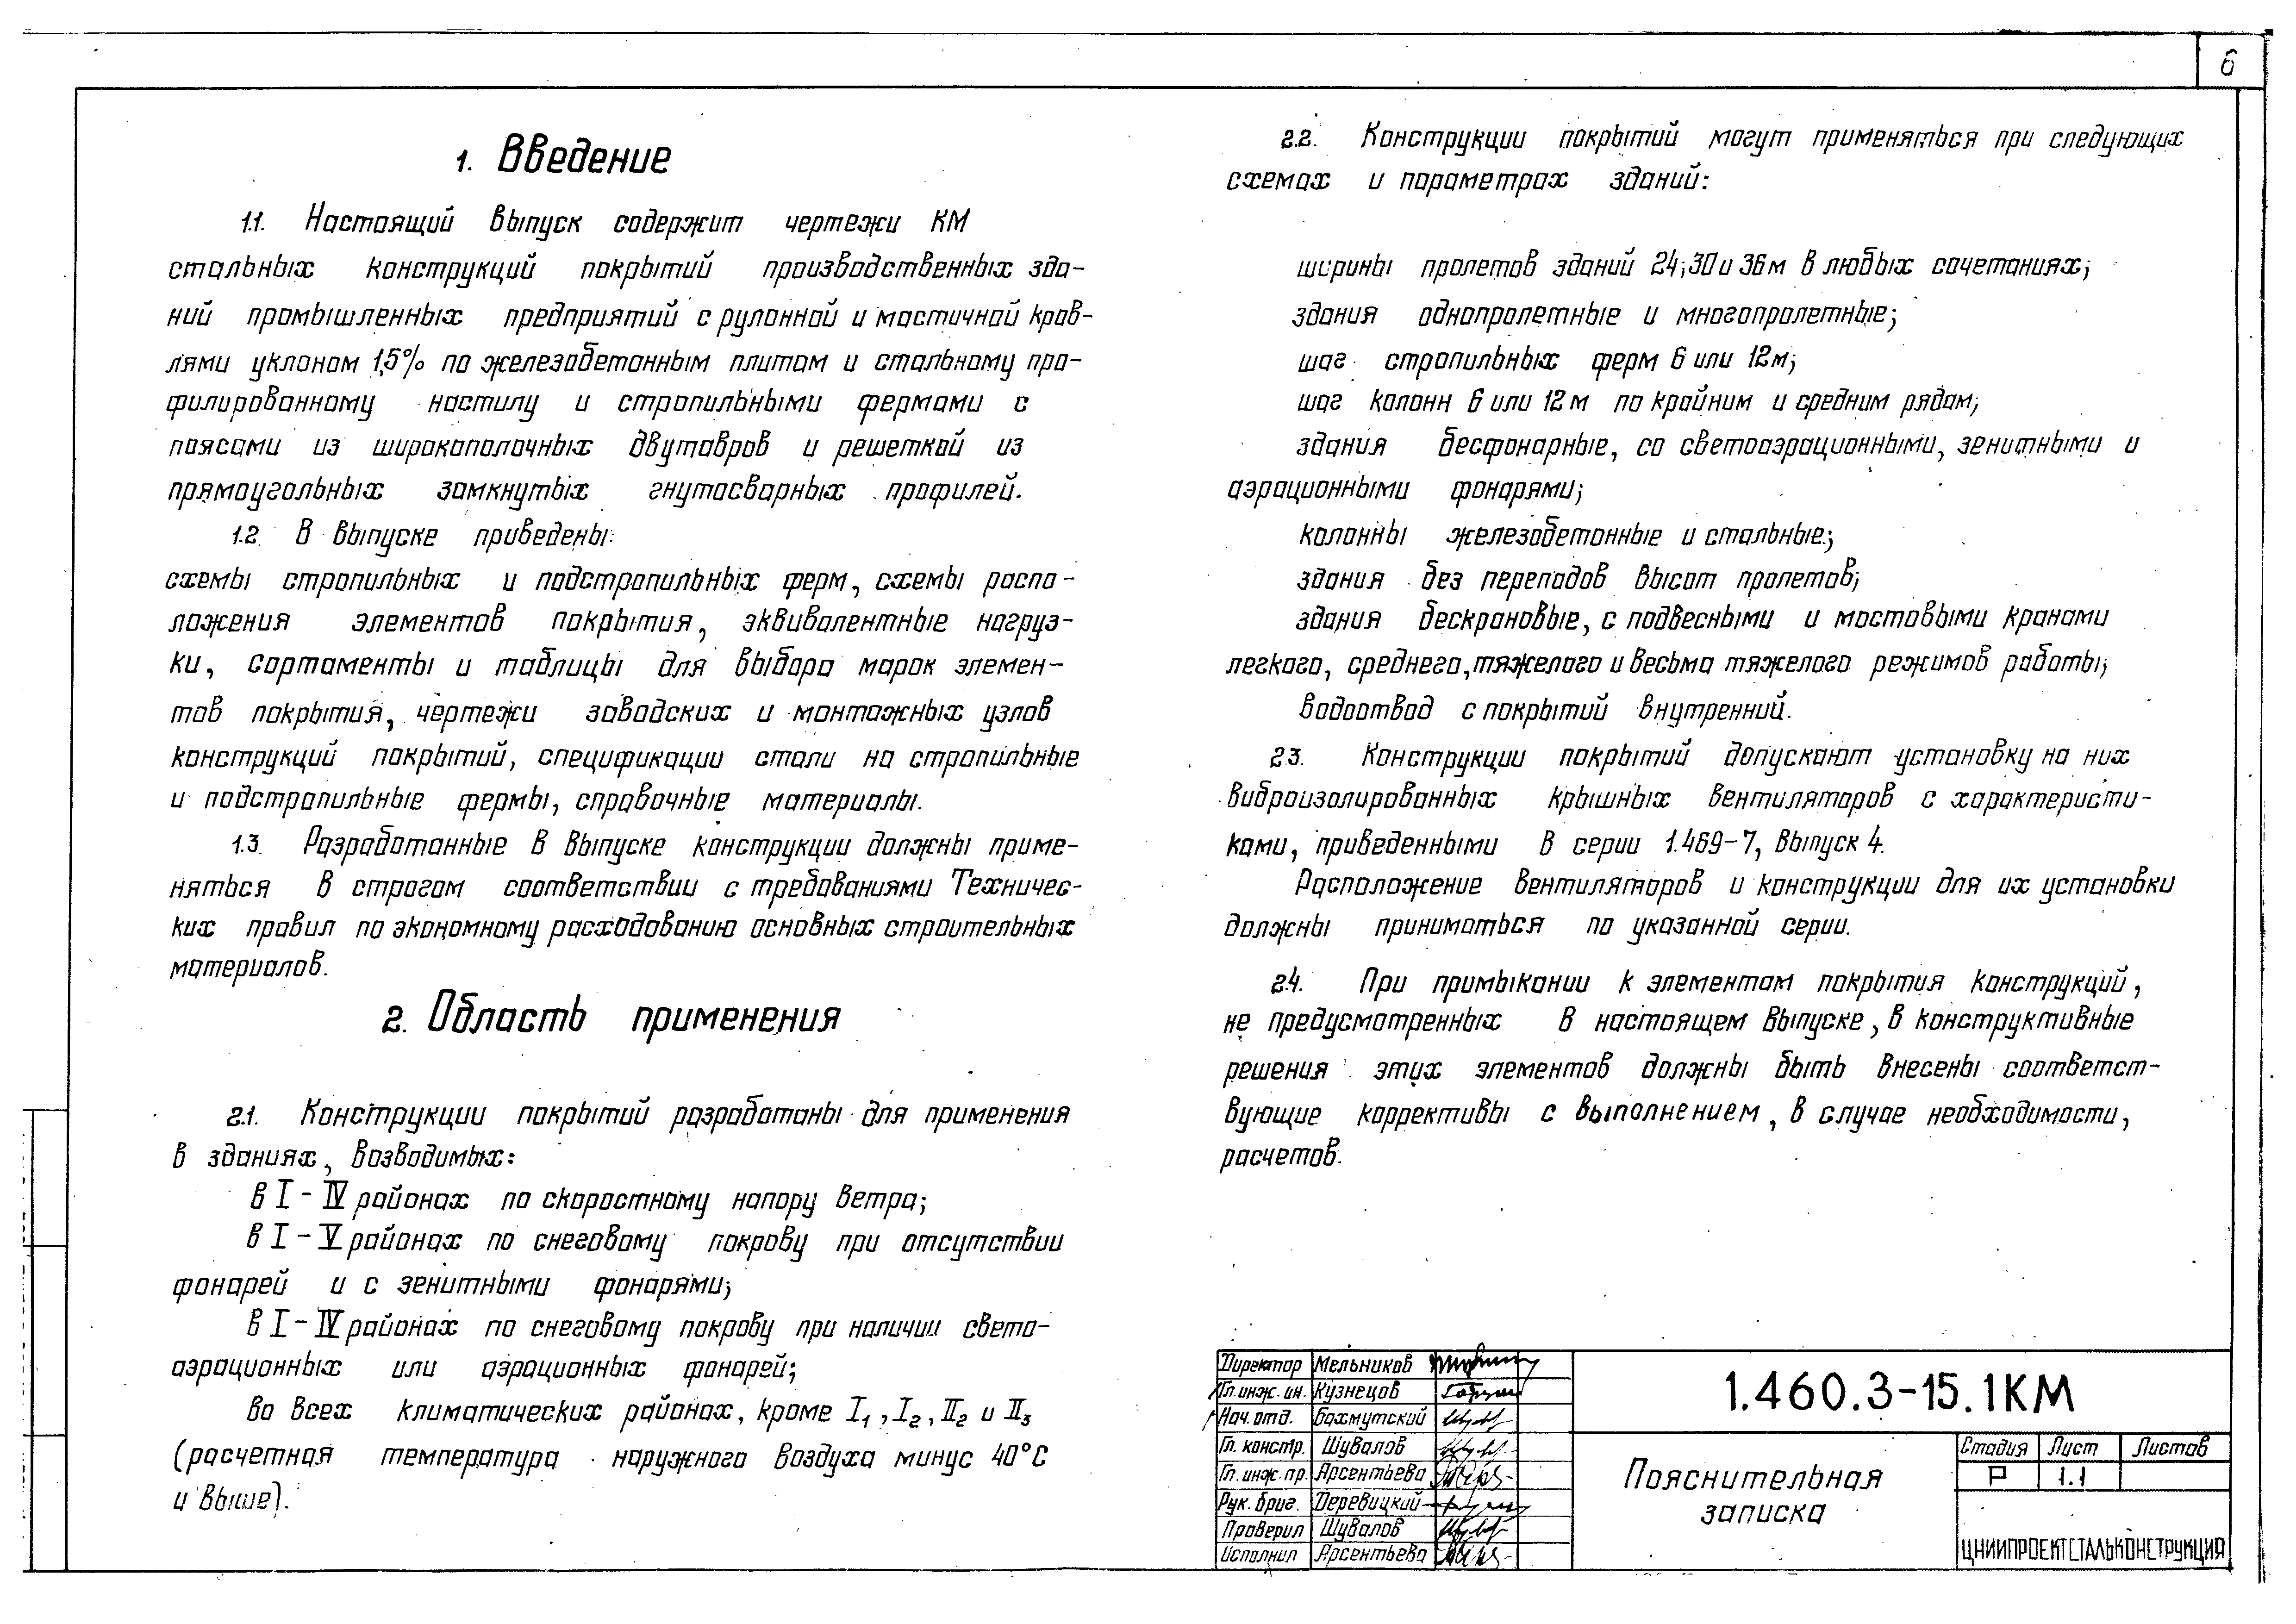 6
1. Введение
1.1. Настоящий выпуск содержит чертежи КМ
стальных конструкций покрытий производственных зда-
ний промышленных предприятий с рулонной и мастичной кров-
лями уклоном 1,5% по железобетонным плитам и стальному про-
филированному настилу и стропильными фермами с
поясами из широкополочных двутавров и решеткой из
прямоугольных замкнутых гнутосварных профилей.
1.2. В выпуске приведены:
схемы стропильных и подстропильных ферм, схемы распо-
ложения элементов покрытия, эквивалентные нагруз-
ки, сортаменты и таблицы для выбора марок элемен-
тов покрытия, чертежи заводских и монтажных узлов
конструкций покрытий, спецификации стали на стропильные
и подстропильные фермы, справочные материалы.
1.3. Разработанные в выпуске конструкции должны приме-
няться в строгом соответствии с требованиями Техничес-
ких правил по экономному расходованию основных строительных
материалов.
2. Область применения
2.1. Конструкции покрытий разработаны для применения
в зданиях, возводимых:
в I-IV районах по скоростному напору ветра;
в I-V районах по снеговому покрову при отсутствии
фонарей и с зенитными фонарями;
в I-IV районах по снеговому покрову при наличии свето-
аэрационных или аэрационных фонарей;
во всех климатических районах, кроме I₁, I₂, II₂ и II₃
(расчетная температура наружного воздуха минус 40°С
и выше).
2.2. Конструкции покрытий могут применяться при следующих
схемах и параметрах зданий:
ширины пролетов зданий 24; 30 и 36 м в любых сочетаниях;
здания однопролетные и многопролетные;
шаг стропильных ферм 6 или 12 м;
шаг колонн 6 или 12 м по крайним и средним рядам;
здания бесфонарные, со светоаэрационными, зенитными и
аэрационными фонарями;
колонны железобетонные и стальные;
здания без перепадов высот пролетов;
здания бескрановые, с подвесными и мостовыми кранами
легкого, среднего, тяжелого и весьма тяжелого режимов работы;
водоотвод с покрытий внутренний.
2.3. Конструкции покрытий допускают установку на них
виброизолированных крышных вентиляторов с характеристи-
ками, приведенными в серии 1.469-7, выпуск 4.
Расположение вентиляторов и конструкции для их установки
должны приниматься по указанной серии.
2.4. При примыкании к элементам покрытия конструкций,
не предусмотренных в настоящем выпуске, в конструктивные
решения этих элементов должны быть внесены соответст-
вующие коррективы с выполнением, в случае необходимости,
расчетов.
Директор Мельников
Гл. инж. ин. Кузнецов
Нач. отд. Бахмутский
Гл. констр. Шувалов
Гл. инж. пр. Арсентьева
Рук. бриг. Деревицкий
Проверил Шувалов
Исполнил Арсентьева
1.460.3-15.1КМ
Пояснительная
записка
Стадия Лист Листов
Р 1.1
ЦНИИПРОЕКТСТАЛЬКОНСТРУКЦИЯ